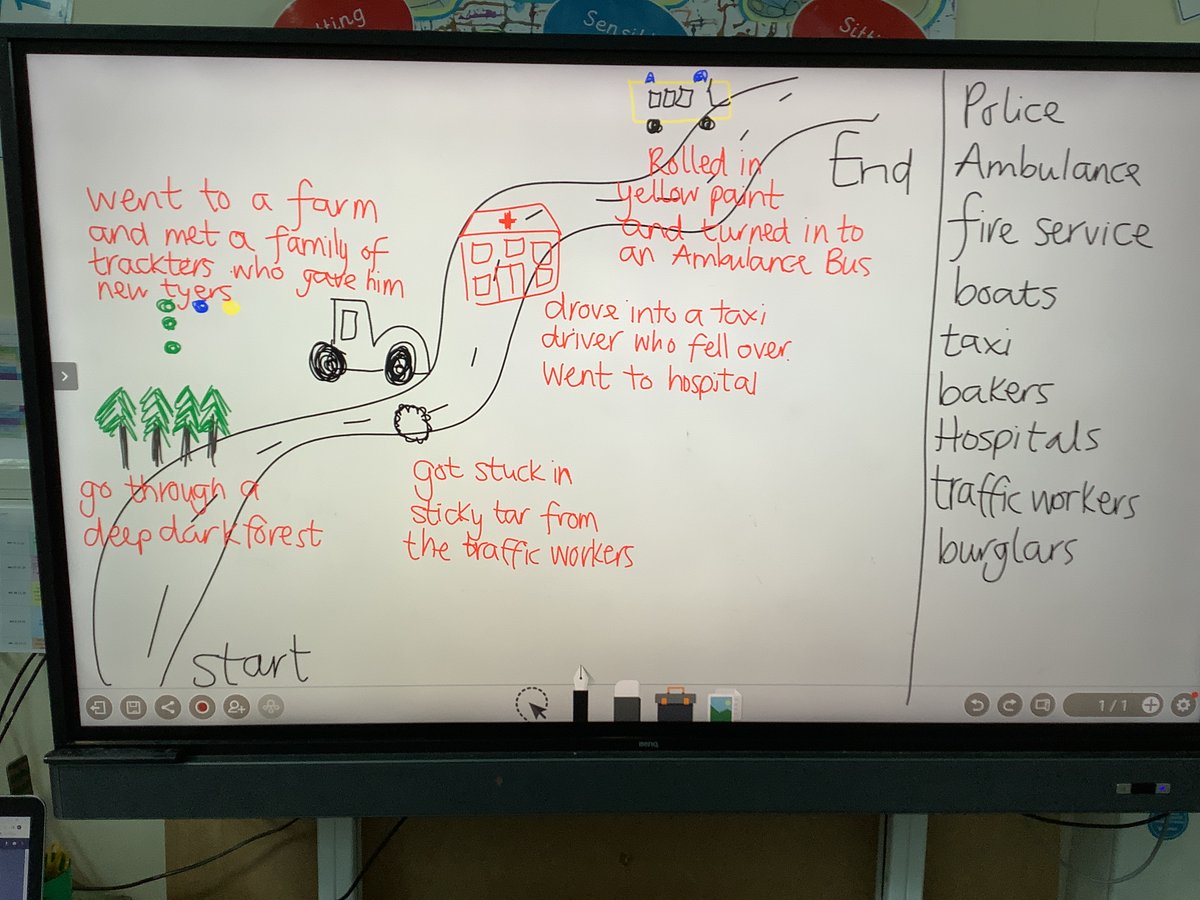 went to a farm
and met a family of
trackters who gave him
new tyers
go through a
deep dark forest
start
got stuck in
sticky tar from
the traffic workers
drove into a taxi
driver who fell over.
went to hospital
Rolled in
yellow paint
and turned in to
an Ambulance Bus
End
Police
Ambulance
fire service
boats
taxi
bakers
Hospitals
traffic workers
burglars
1/1
BenQ